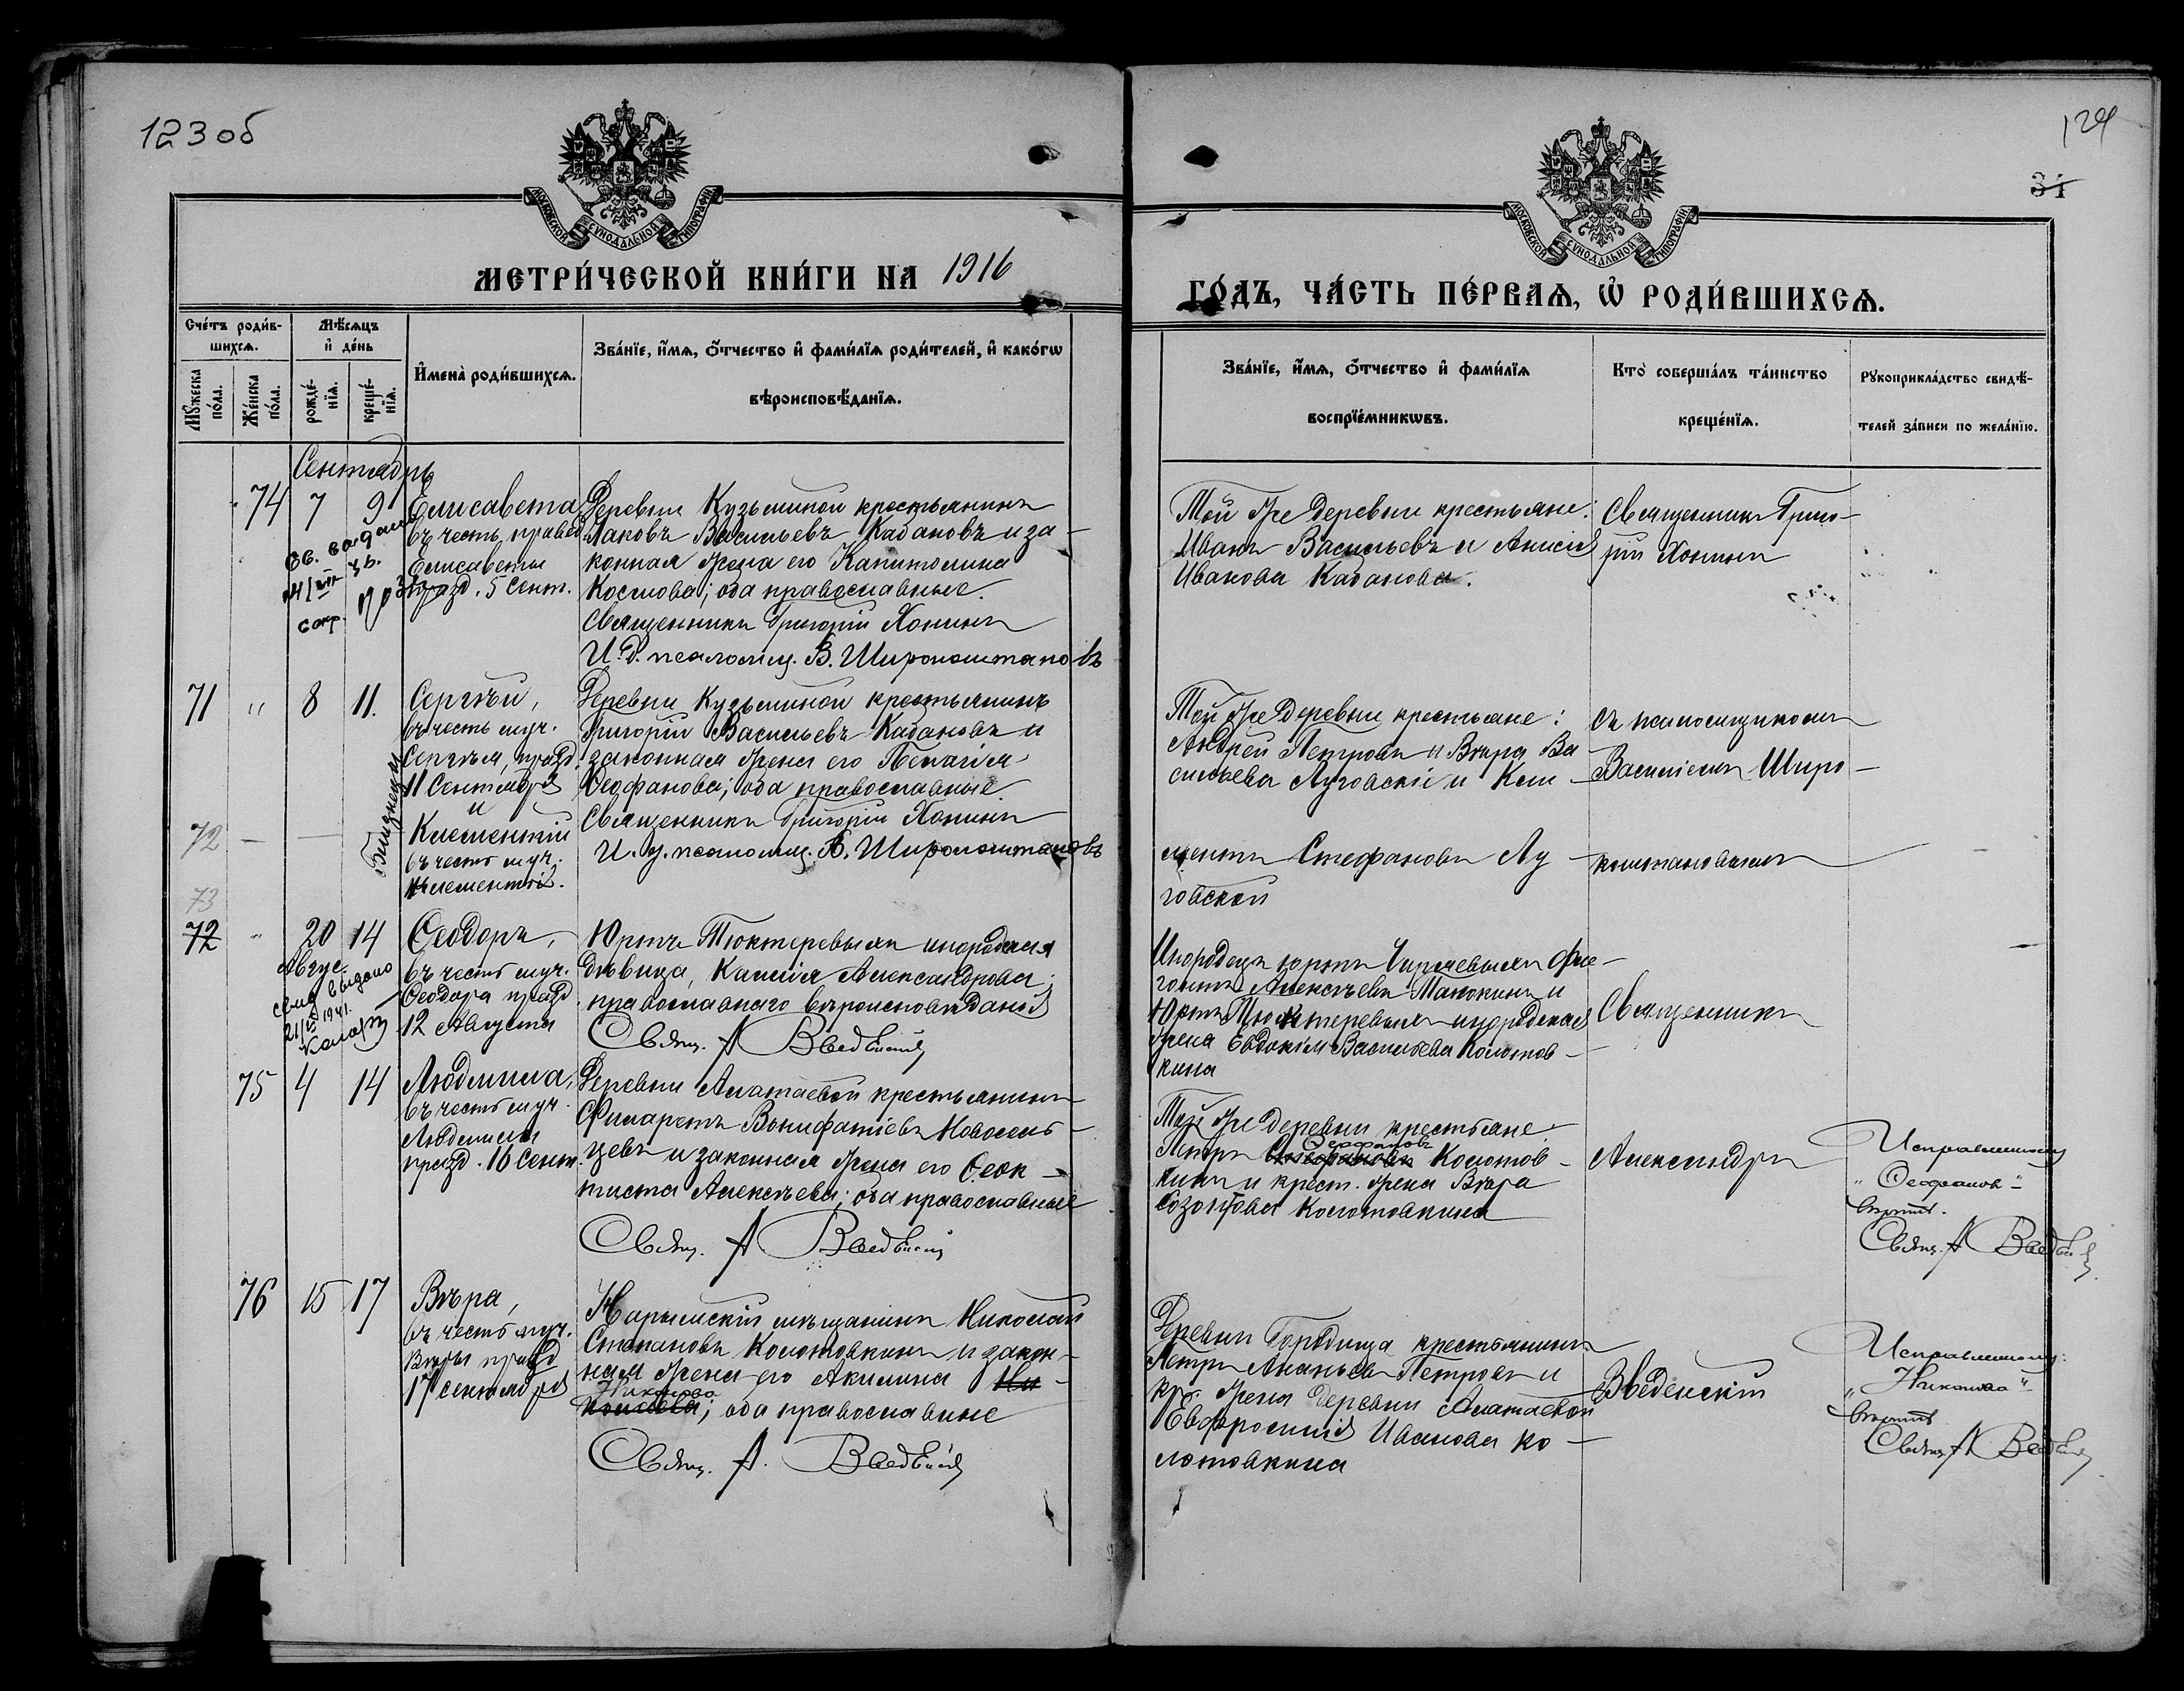 123 об
124
34
МОСКОВСКОЙ СѴНОДАЛЬНОЙ ТИПОГРАФІИ
МОСКОВСКОЙ СѴНОДАЛЬНОЙ ТИПОГРАФІИ
МЕТРИ́ЧЕСКОЙ КНИ́ГИ НА 1916
ГО́ДЪ, ЧА́СТЬ ПЕ́РВАѦ, Ѡ҆ РОДИ́ВШИХСѦ.
Сче́тъ роди́в-
шихсѧ.
Мꙋ́жеска по́ла.
Же́нска по́ла.
Мѣ́сѧцъ
и҆ де́нь
рожде́-
нїѧ.
креще́-
нїѧ.
И҆мена̀ роди́вшихсѧ.
Зва́нїе, и҆́мѧ, ѻ҆́тчество и҆ фами́лїѧ роди́телей, и҆ како́гѡ
вѣроисповѣ́данїѧ.
Зва́нїе, и҆́мѧ, ѻ҆́тчество и҆ фами́лїѧ
воспрїе́мникѡвъ.
Кто̀ соверша́лъ та́инство
креще́нїѧ.
Рꙋкоприкла́дство свидѣ́-
телей за́писи по жела́нїю.
Сентябрь
74 7 9
Елисавета
въ честь правед.
Елисаветы
празд. 5 Сент.
Деревни Кузьминой крестьянинъ
Иаковъ Васильевъ Кабановъ и за-
конная жена его Капитолина
Космова; оба православные.
Священникъ Григорій Хонинъ
И. д. псаломщ. В. Широкоштановъ
Той же деревни крестьяне:
Иванъ Васильевъ и Анисія
Иванова Кабановы.
Священникъ Григо-
рій Хонинъ
71 " 8 11.
Сергѣй,
въ честь муч.
Сергѣя, празд.
11 Сентября
и
Климентій
въ честь муч.
Климентія.
близнецы
72 — —
Деревни Кузьминой крестьянинъ
Григорій Васильевъ Кабановъ и
законная жена его Пелагія
Ѳеофанова; оба православные.
Священникъ Григорій Хонинъ
И. д. псаломщ. В. Широкоштановъ
Той же деревни крестьяне:
Андрей Петровъ и Вѣра Ва-
сильева Луговскіе и Кли-
ментъ Стефановъ Лу-
говской
съ псаломщикомъ
Василіемъ Широ-
коштановымъ
73
72 " 20 14
Август
Ѳеодоръ,
въ честь муч.
Ѳеодора празд.
12 Августа
Юртъ Тюктеревыхъ инородская
дѣвица, Капитолина Александрова;
православнаго вѣроисповѣданія
Свящ. А Введенскій
Инородецъ юртъ
Алексѣевъ Манокинъ и
Юртъ Тюктеревыхъ инородская
жена Евдокія Васильева Колотов-
кина
Священникъ
75 4 14
Людмила,
въ честь муч.
Людмилы
празд. 16 Сент.
Деревни Алатаевой крестьянинъ
Филаретъ Вонифатіевъ Новосель-
цевъ и законная жена его Ѳеок-
тиста Алексѣева; оба православные
Свящ. А Введенскій
Той же деревни крестьяне:
Ѳеофановъ
Петръ Колотов-
кинъ и крест. жена Вѣра
Созонтова Колотовкина
Александръ
Исправленному
"Ѳеофановъ"
вѣрить.
Свящ. А Введенскій
76 15 17
Вѣра,
въ честь муч.
Вѣры празд.
17 сентября
Нарымскій мѣщанинъ Николай
Степановъ Колотовкинъ и закон-
ная жена его Акилина Ни-
Никонова
колаева; оба православные
Свящ. А. Введенскій
Деревни Городища крестьянинъ
Петръ Ананьевъ Петровъ и
кр. жена деревни Алатаевой
Евфросинія Иванова Ко-
лотовкина
Введенскій
Исправленному:
"Никонова"
вѣрить
Свящ. А Введенскій